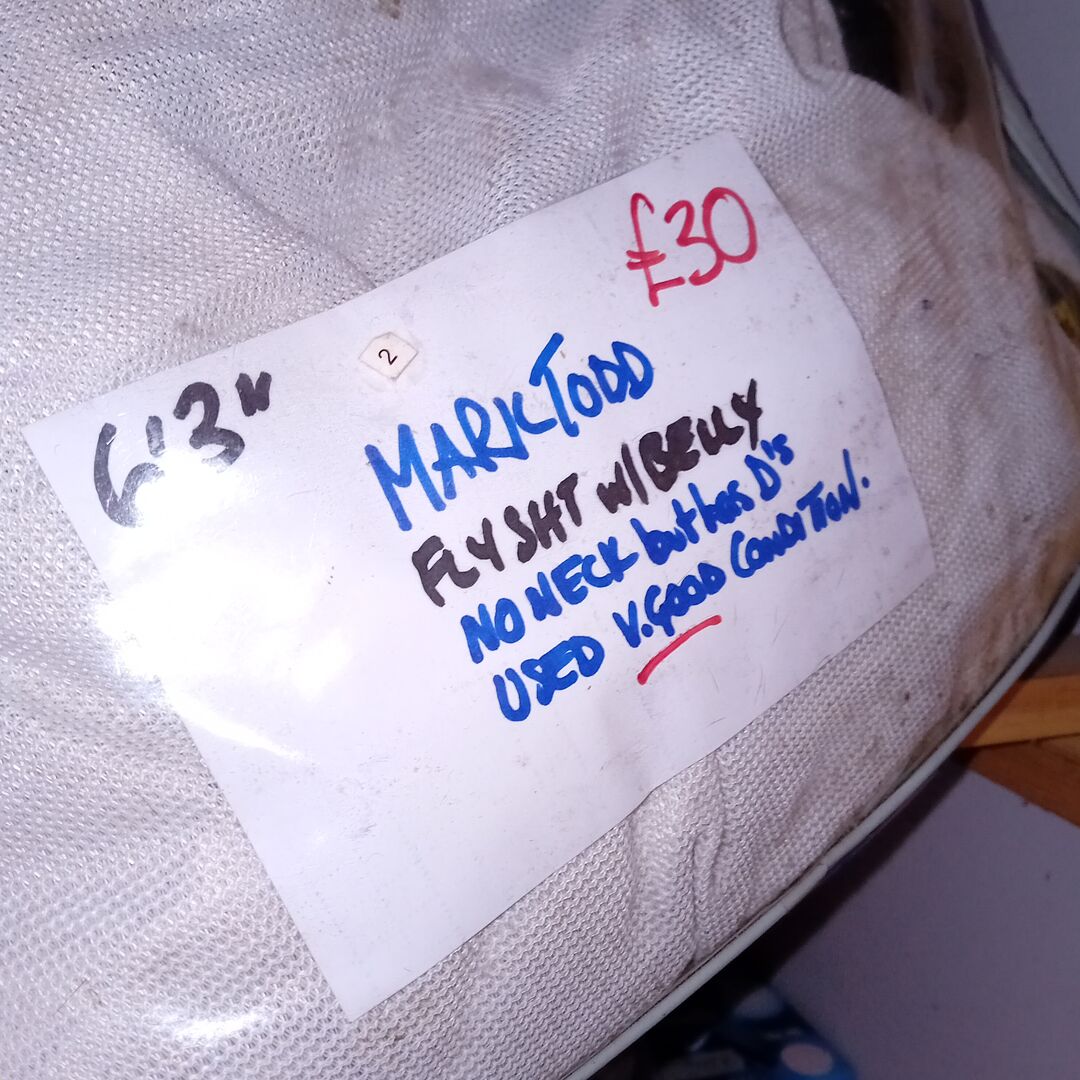 £30
2
6'3"
MARK TODD
FLY SHT W/BELLY
NO NECK but has D's
USED V.GOOD CONDITION.